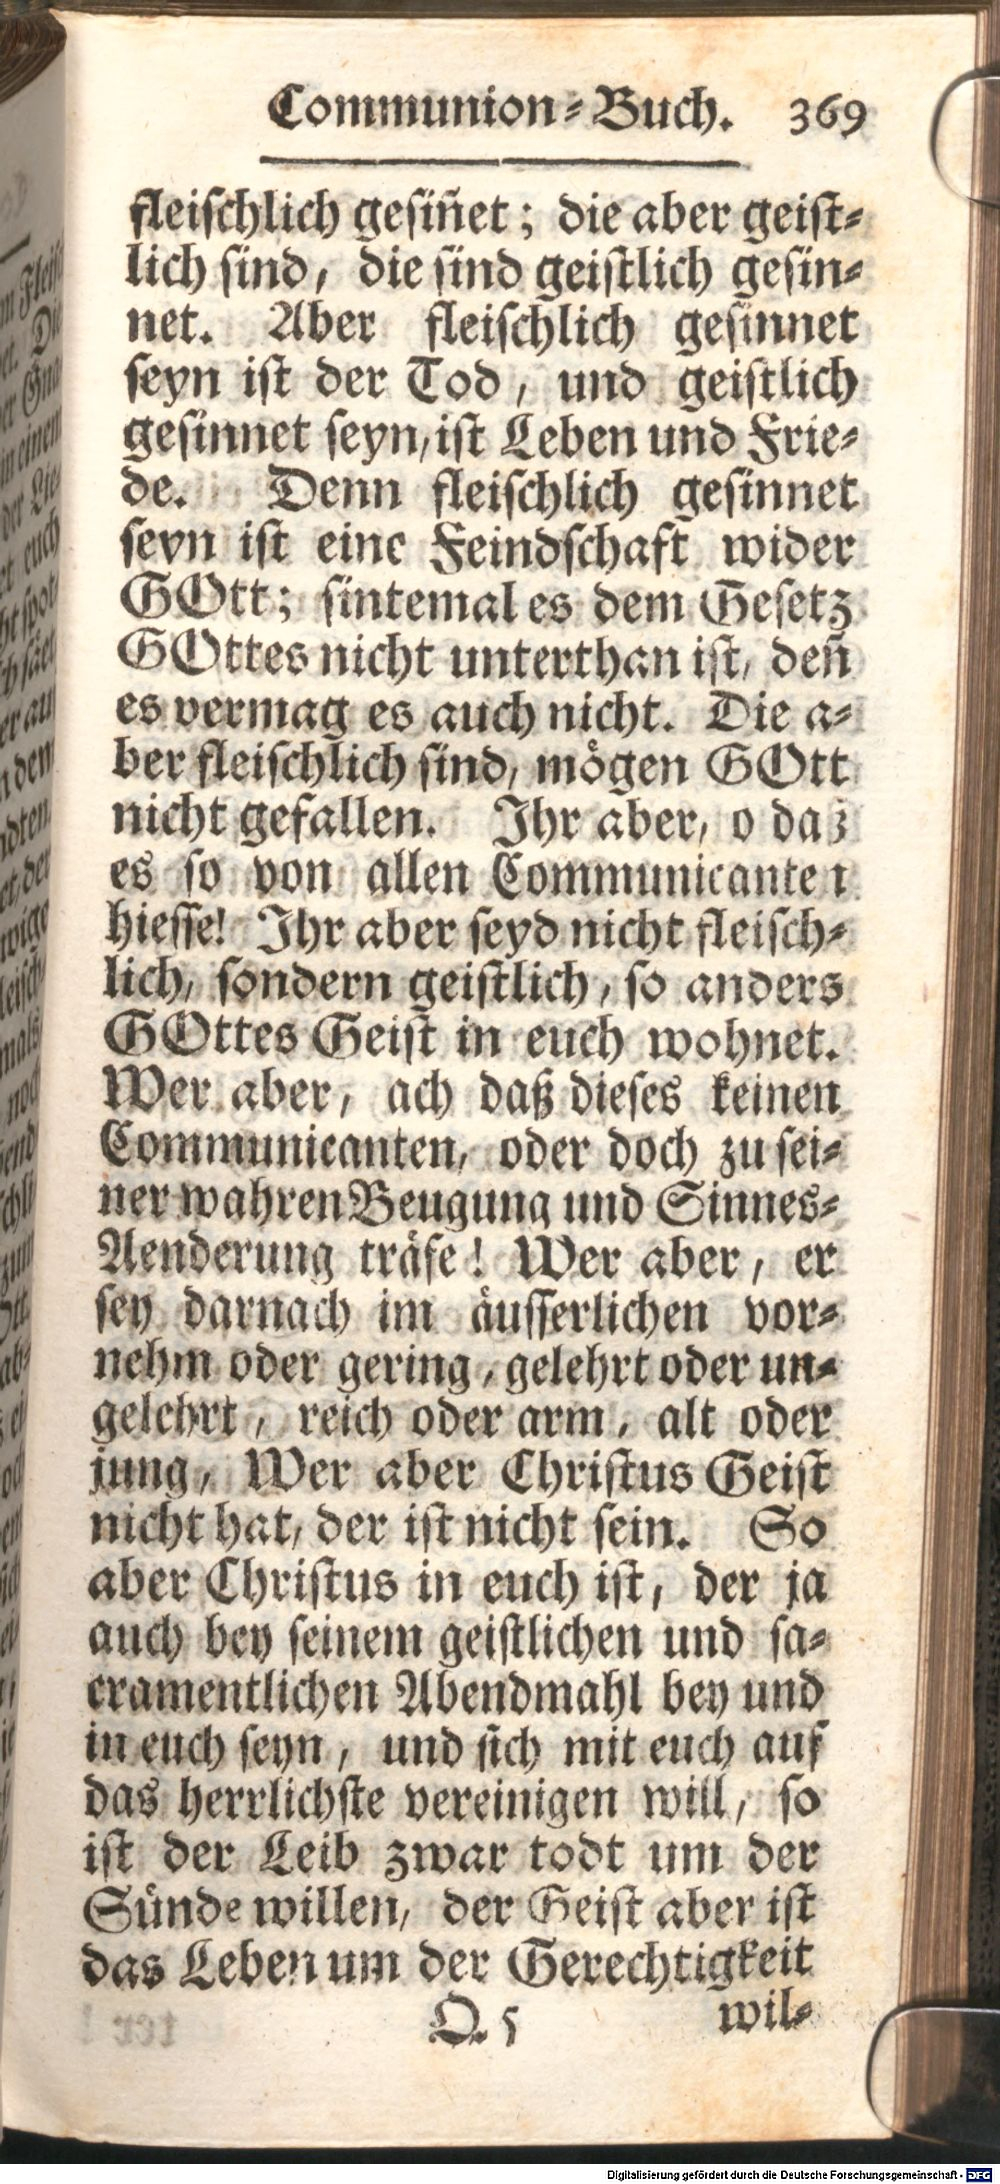 Communion-Buch. 369
fleiſchlich geſiñet; die aber geiſt-
lich ſind, die ſind geiſtlich geſin-
net. Aber fleiſchlich geſinnet
ſeyn iſt der Tod, und geiſtlich
geſinnet ſeyn, iſt Leben und Frie-
de. Denn fleiſchlich geſinnet
ſeyn iſt eine Feindſchaft wider
GOtt; ſintemal es dem Geſetz
GOttes nicht unterthan iſt, deñ
es vermag es auch nicht. Die a-
ber fleiſchlich ſind, mögen GOtt
nicht gefallen. Ihr aber, o daß
es ſo von allen Communicanten
hieſſe! Ihr aber ſeyd nicht fleiſch-
lich, ſondern geiſtlich, ſo anders
GOttes Geiſt in euch wohnet.
Wer aber, ach daß dieſes keinen
Communicanten, oder doch zu ſei-
ner wahren Beugung und Sinnes-
Aenderung träfe! Wer aber, er
ſey darnach im äuſſerlichen vor-
nehm oder gering, gelehrt oder un-
gelehrt, reich oder arm, alt oder
jung, Wer aber Chriſtus Geiſt
nicht hat, der iſt nicht ſein. So
aber Chriſtus in euch iſt, der ja
auch bey ſeinem geiſtlichen und ſa-
cramentlichen Abendmahl bey und
in euch ſeyn, und ſich mit euch auf
das herrlichſte vereinigen will, ſo
iſt der Leib zwar todt um der
Sünde willen, der Geiſt aber iſt
das Leben um der Gerechtigkeit
Q 5 wil-
Digitalisierung gefördert durch die Deutsche Forschungsgemeinschaft - DFG